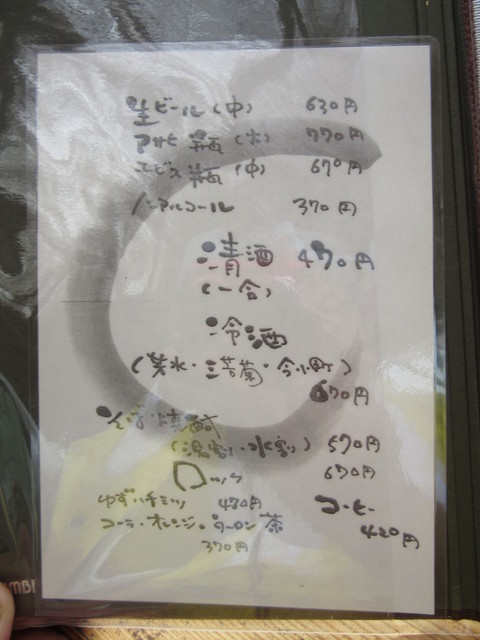 生ビール(中) 630円
アサヒ瓶(大) 770円
エビス瓶(中) 670円
ノンアルコール 370円
清酒 470円
(一合)
冷酒
(芳水・三芳菊・今小町)
670円
そば焼酎
(湯割・水割) 570円
ロック 670円
ゆずハチミツ 470円 コーヒー
コーラ・オレンジ・ウーロン茶 420円
370円
MBI